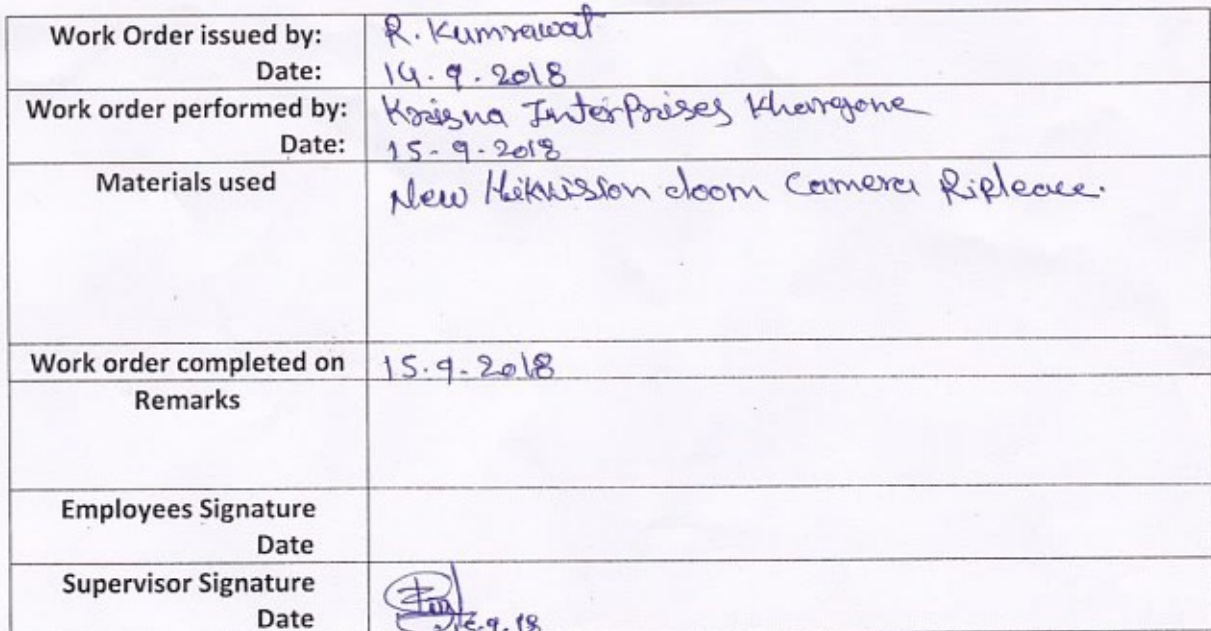 Work Order issued by: R. Kumrawat
Date: 14.9.2018
Work order performed by: Kraisna Interprises Khargone
Date: 15-9-2018
Materials used New Hikvission doom Camera Ripleace.
Work order completed on 15.9-2018
Remarks
Employees Signature
Date
Supervisor Signature
Date